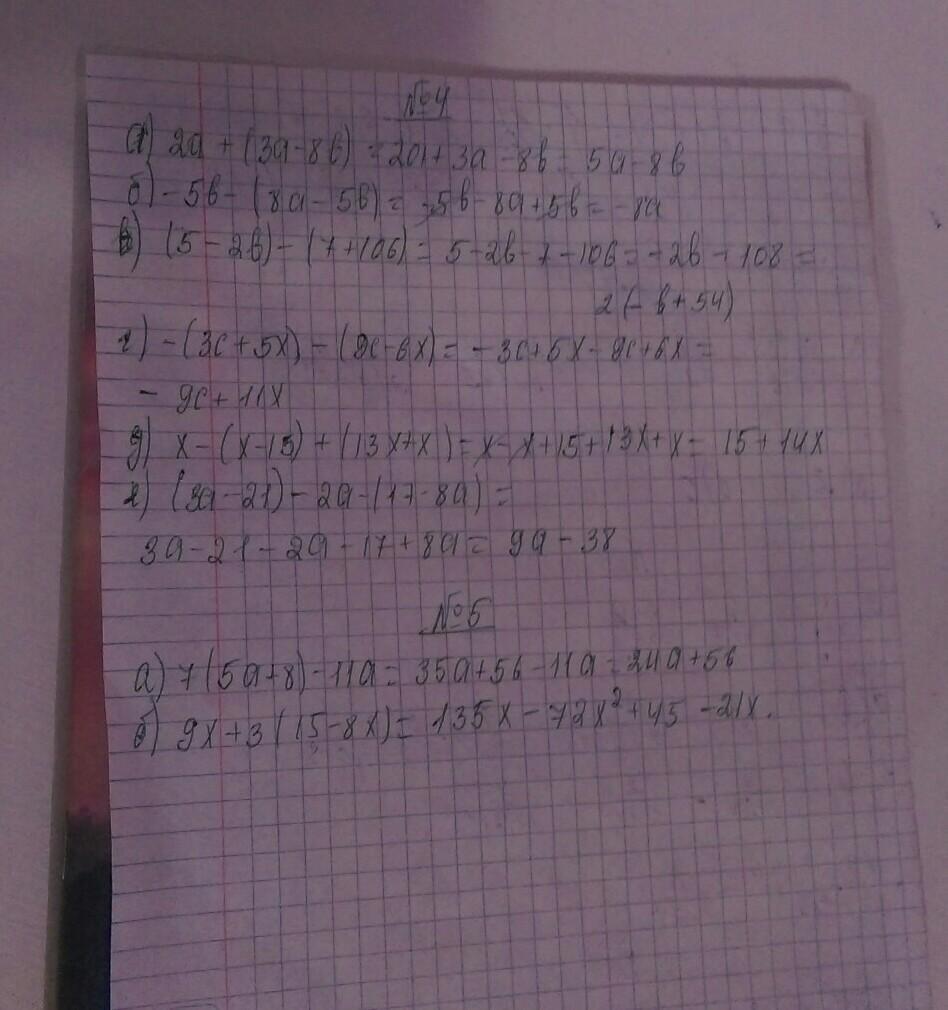 №4
а) 2a + (3a - 8b) = 2a + 3a - 8b = 5a - 8b
б) - 5b - (8a - 5b) = -5b - 8a + 5b = -8a
в) (5 - 2b) - (7 + 106) = 5 - 2b - 7 - 106 = -2b - 108 =
2(-b + 54)
г) -(3c + 5x) - (9c - 6x) = - 3c + 5x - 9c + 6x =
- 9c + 11x
д) x - (x - 15) + (13x + x) = x - x + 15 + 13x + x = 15 + 14x
е) (3a - 21) - 2a - (17 - 8a) =
3a - 21 - 2a - 17 + 8a = 9a - 38
№5
а) 7(5a + 8) - 11a = 35a + 56 - 11a = 24a + 56
б) 9x + 3(15 - 8x) = 135x - 72x² + 45 - 21x.